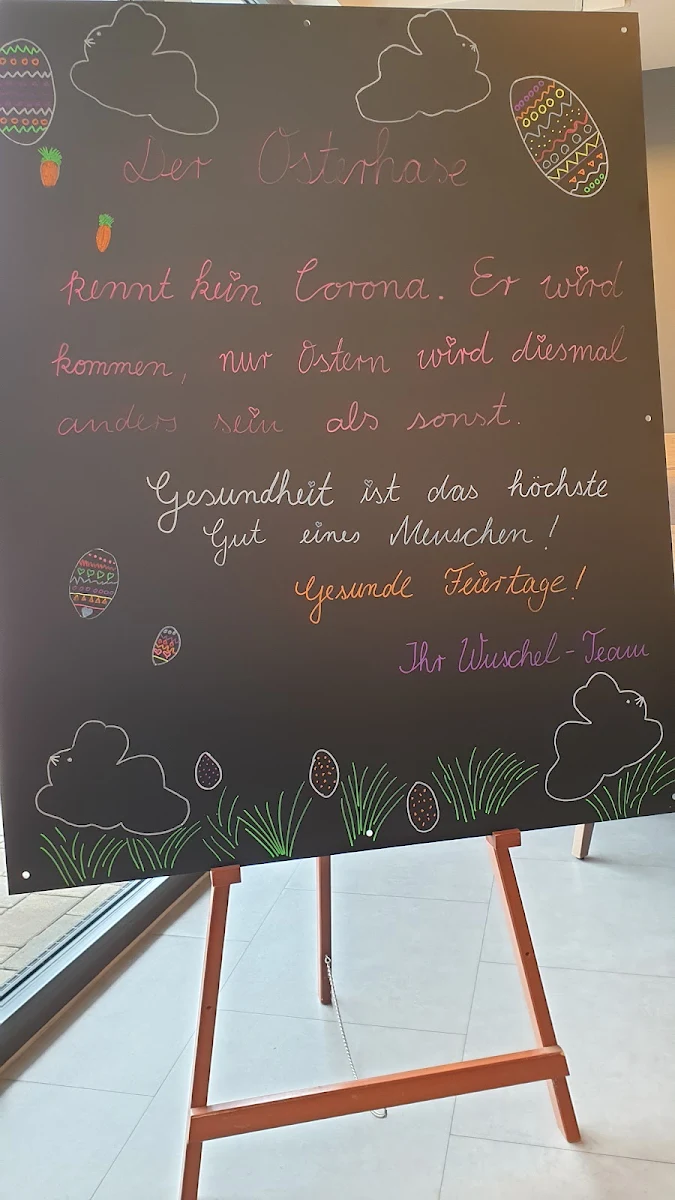 Der Osterhase
kennt kein Corona. Er wird
kommen, nur Ostern wird diesmal
anders sein als sonst.
Gesundheit ist das höchste
Gut eines Menschen!
Gesunde Feiertage!
Ihr Wuschel-Team